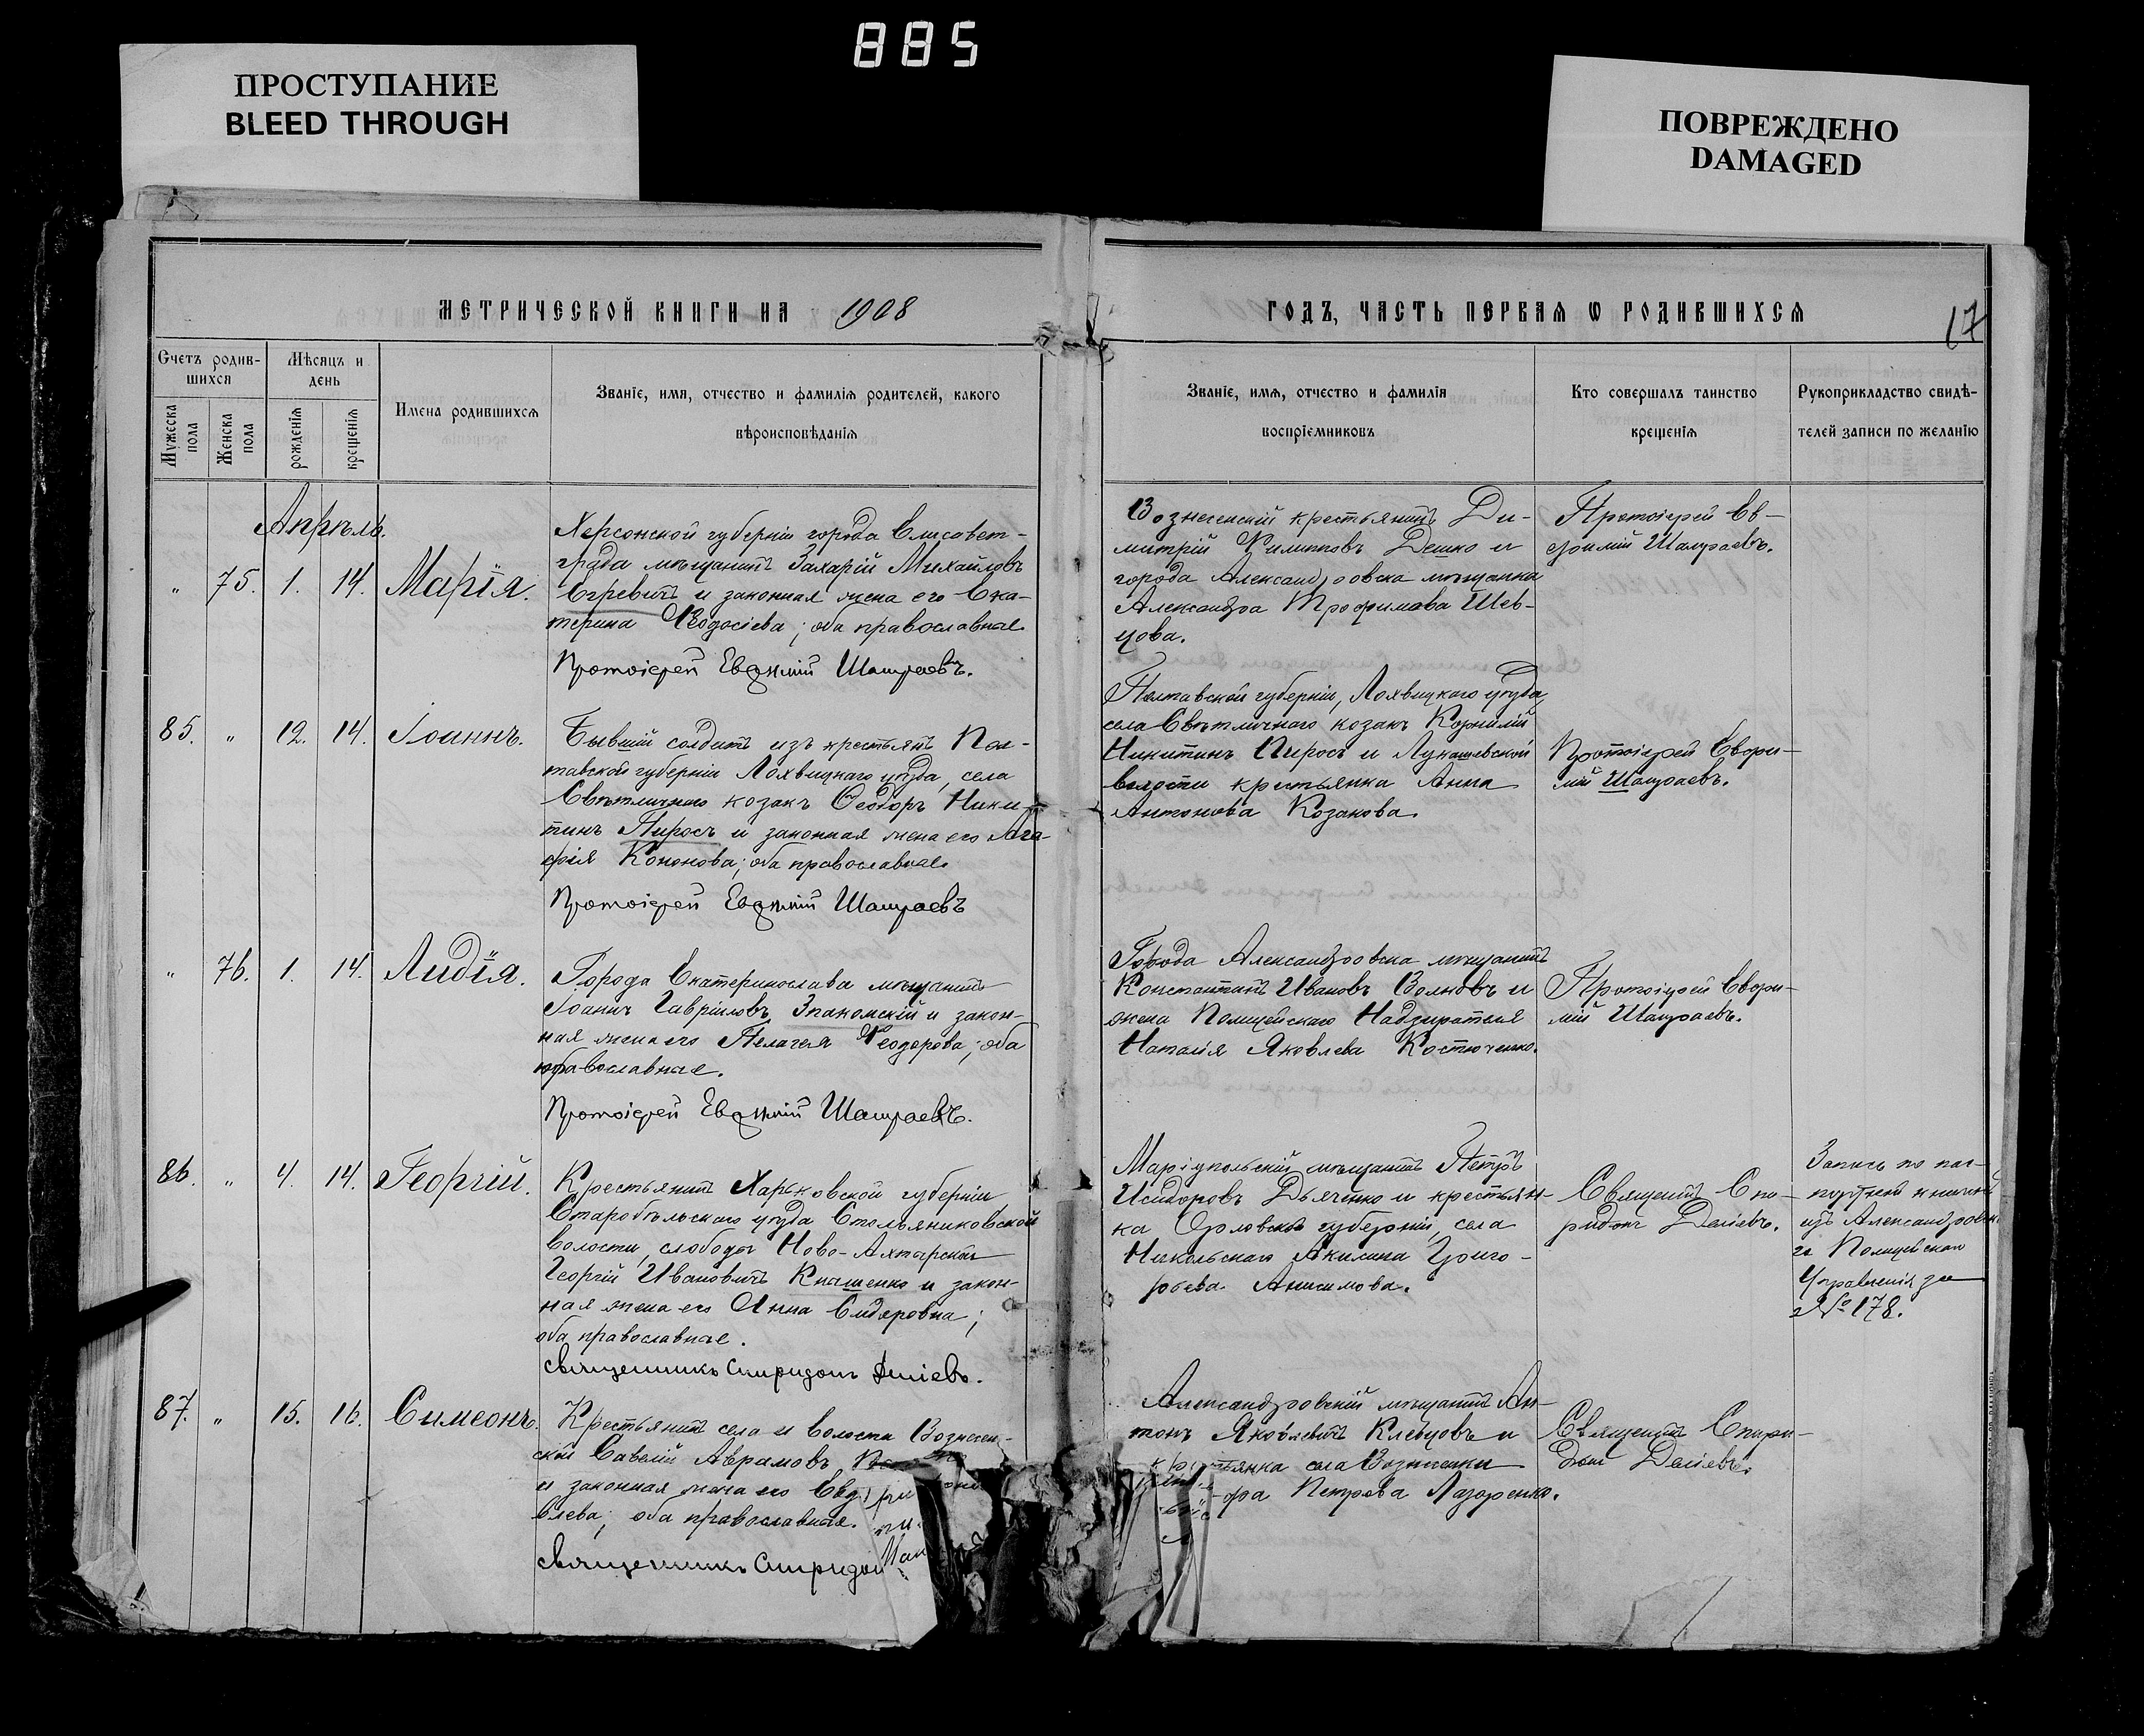 885
ПРОСТУПАНИЕ
BLEED THROUGH
ПОВРЕЖДЕНО
DAMAGED
МЕТРИЧЕСКОЙ КНИГИ НА 1908
ГОДЪ, ЧАСТЬ ПЕРВАЯ Ѡ РОДИВШИХСЯ
17
Счетъ родив-
шихся
Мѣсяцъ и
день
Мужеска
пола
Женска
пола
рожденія
крещенія
Имена родившихся
Званіе, имя, отчество и фамилія родителей, какого
вѣроисповѣданія
Званіе, имя, отчество и фамилія
воспріемниковъ
Кто совершалъ таинство
крещенія
Рукоприкладство свидѣ-
телей записи по желанію
Апрѣль.
„ 75. 1. 14. Марія.
Херсонской губерніи города Елисавет-
града мѣщанинъ Захарій Михайловъ
и законная жена его Ека-
терина Ѳеодосіева; оба православные
Протоіерей Евѳимій
Вознесенскій крестьянинъ Ди-
митрій Филипповъ Дешко и
города Александровска мѣщанка
Александра Трофимова Шев-
цова.
Протоіерей Ев-
ѳимій
85. „ 12. 14. Іоаннъ.
Бывшій солдатъ изъ крестьянъ Пол-
тавской губерніи Лохвицкаго уѣзда, села
Свѣтличнаго козакъ Ѳеодоръ Ники-
тинъ Пирось и законная жена его Ага-
фія Кононова; оба православные
Протоіерей Евѳимій
Полтавской губерніи, Лохвицкаго уѣзда,
села Свѣтличнаго козакъ Корнилій
Никитинъ Пирось и Лукашевской
волости крестьянка Анна
Антонова Козакова.
Протоіерей Евѳи-
мій
„ 76. 1. 14. Лидія.
Города Екатеринослава мѣщанинъ
Іоаннъ Гавріиловъ и закон-
ная жена его Пелагея Ѳеодорова; оба
православные.
Протоіерей Евѳимій
Города Александровска мѣщанинъ
Константинъ Ивановъ Волковъ и
жена Полицейскаго Надзирателя
Наталія Яковлева Костюченко.
Протоіерей Евѳи-
мій
86. „ 4. 14. Георгій.
Крестьянинъ Харьковской губерніи
Старобѣльскаго уѣзда
волости, слободы Ново-Ахтарской
Георгій Ивановичъ и закон-
ная жена его Анна Сидоровна;
оба православные.
Священникъ Спиридонъ Деліевъ.
Маріупольскій мѣщанинъ Петръ
Исидоровъ Дьяченко и крестьян-
ка Орловской губерніи, села
Никольскаго Акилина Григо-
рьева Анисимова.
Священникъ Спи-
ридонъ Деліевъ.
Запись по пас-
портной книжкѣ
изъ Александровска-
го Полицейскаго
Управленія за
№ 178.
87. „ 15. 16. Симеонъ.
Крестьянинъ села и волости Вознесен-
ской Савелій Аврамовъ
и законная жена его
оба православные.
Священникъ Спиридон
Александровскій мѣщанинъ Ан-
тонъ Яковлевичъ Клевцовъ и
села Вознесенки
Петрова Лазоренко.
Священникъ Спири-
донъ Деліевъ.